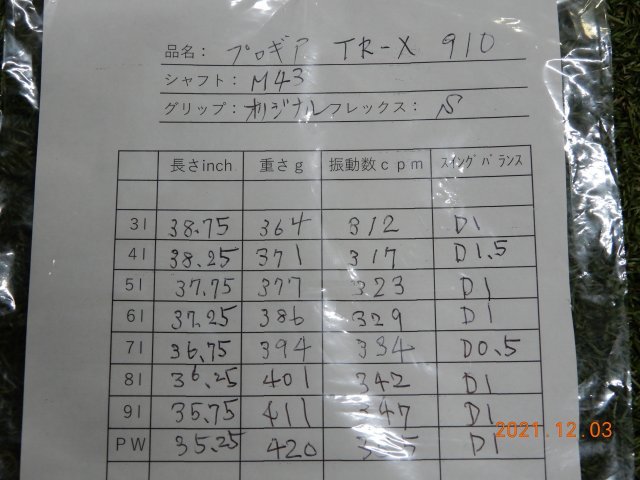 品名: プロギア TR-X 910
シャフト: M43
グリップ: オリジナル フレックス: S
長さinch 重さg 振動数cpm スイングバランス
3I 38.75 364 312 D1
4I 38.25 371 317 D1.5
5I 37.75 377 323 D1
6I 37.25 386 329 D1
7I 36.75 394 334 D0.5
8I 36.25 401 342 D1
9I 35.75 411 347 D1
PW 35.25 420 D1
2021.12.03